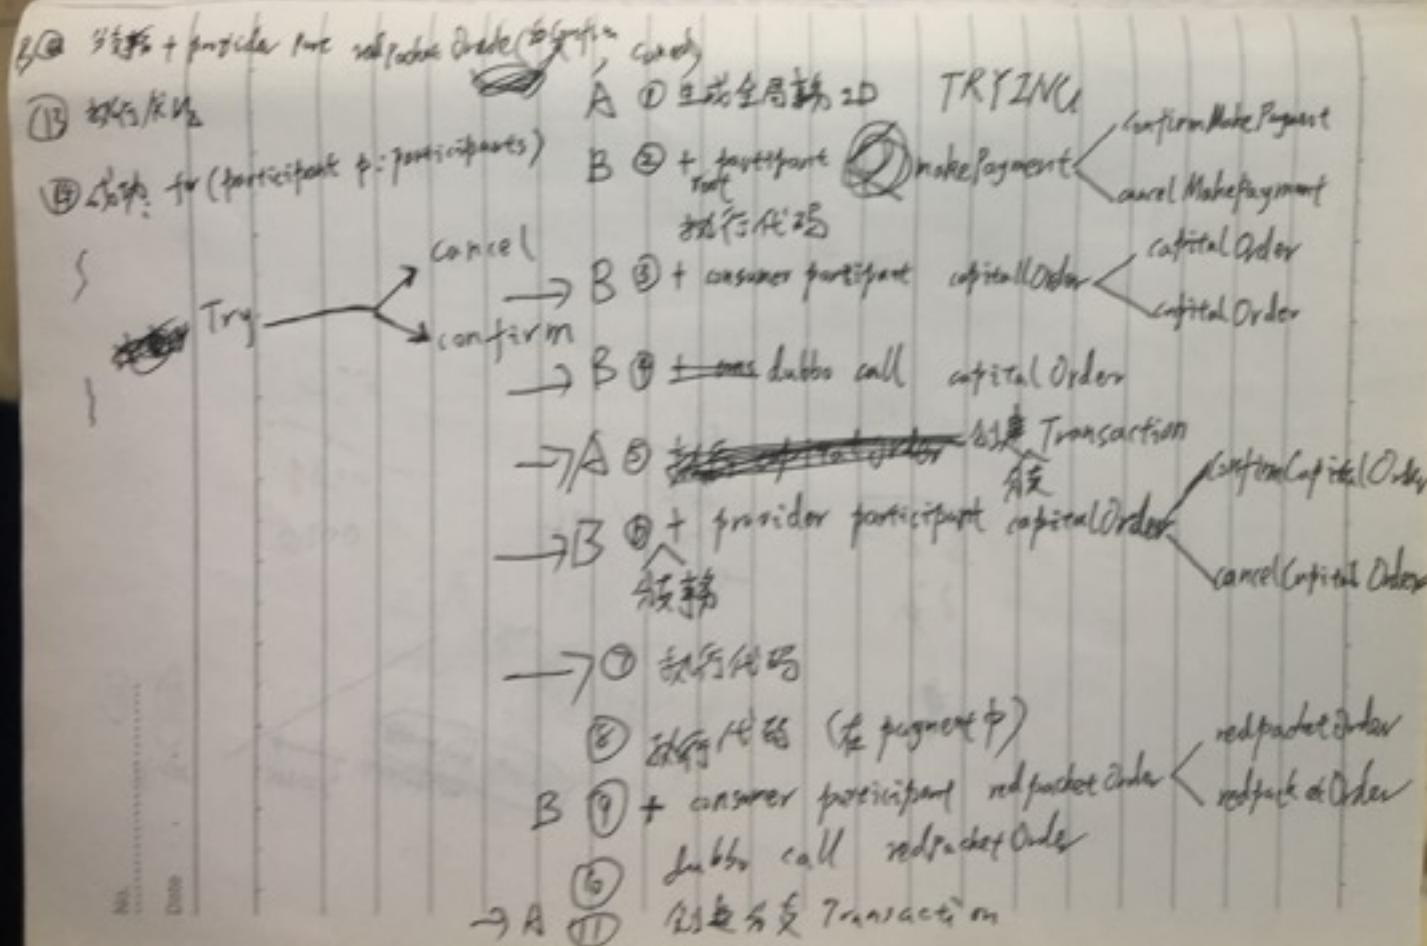 B ⑫ 分支务 + provider part redPacketOrade (confirm, cancel)
⑬ 执行代码
⑭ 成功: for (participant p: participants)
Try
cancel
confirm
A ① 生成全局事务ID TRYING
B ② + partipant makePayment
root
confirmMakePayment
cancelMakePayment
执行代码
→ B ③ + consumer partipant capitalOrder
capitalOrder
capitalOrder
→ B ④ dubbo call capitalOrder
→ A ⑤ 创建 Transaction
分支
→ B ⑥ + provider participant capitalOrder
confirmCapitalOrder
cancelCapitalOrder
分支事务
→ ⑦ 执行代码
⑧ 执行代码 (在payment中)
B ⑨ + consumer participant redpacketOrder
redpacketOrder
redpacketOrder
⑩ dubbo call redPacketOrder
→ A ⑪ 创建分支 Transaction
No.
Date